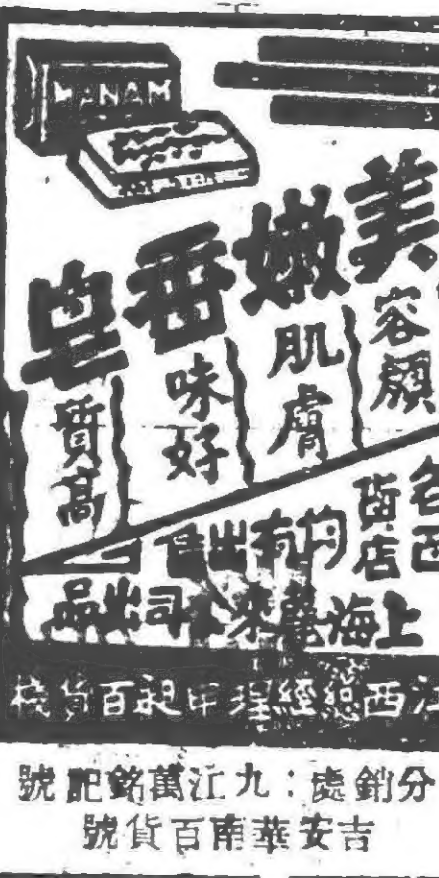 MANAM
美嫩香皂
容顏
肌膚
味好
質高
各西
貨店
均有出售
上海來公司出品
江西總經理中百貨棧
分銷處：九江萬銘記號
吉安華南百貨號